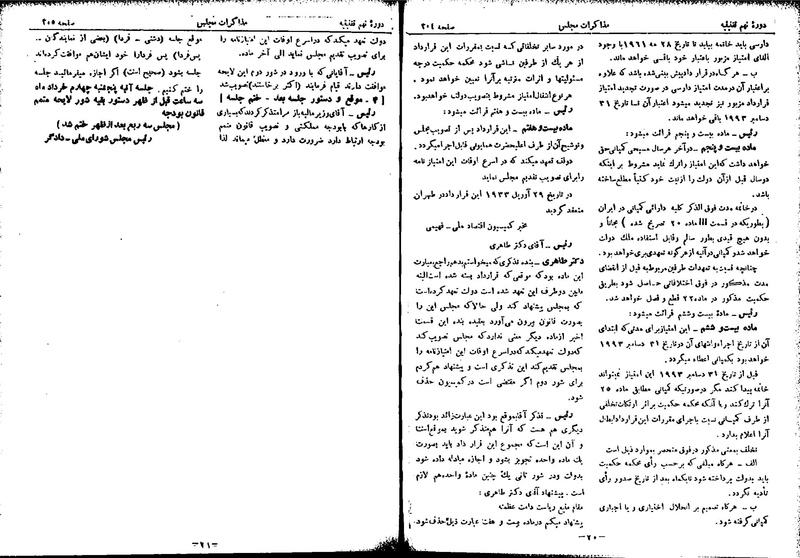 دورهٔ نهم تقنینیه
مذاکرات مجلس
صفحه ۲۰۴
دارسی باید خاتمه بیابد تا تاریخ ۲۸ مه ۱۹۶۱ با وجود
الغای امتیاز مزبور باعتبار خود باقی خواهد ماند.
ب - هرگاه در قرارداد پیش بینی شده باشد که علاوه
براعتبار آن در مدت امتیاز دارسی در صورت تجدید امتیاز
قرارداد مزبور نیز تجدید میشود اعتبار آن تا تاریخ ۳۱
دسامبر ۱۹۹۳ باقی خواهد ماند.
رئیس - ماده بیست و پنجم قرائت میشود:
ماده بیست و پنجم - در آخر هر سال مسیحی کمپانی حق
خواهد داشت که این امتیاز را ترک نماید مشروط بر اینکه
دوسال قبل از آن دولت را از نیت خود کتباً مطلع ساخته
باشد.
در خاتمه مدت فوق الذکر کلیه دارائی کمپانی در ایران
(بطوریکه در قسمت III ماده ۲۰ تصریح شده) مجاناً و
بدون هیچ قیدی بطور سالم و قابل استفاده ملک دولت
خواهد شد و کمپانی در آتیه از هر گونه تعهدی بری خواهد بود.
چنانچه نسبت به تعهدات طرفین مربوطه قبل از انقضای
مدت مذکور در فوق اختلافاتی حاصل شود بطریق
حکمیت مذکور در ماده ۲۲ قطع و فصل خواهد شد.
رئیس - مادهٔ بیست و ششم قرائت میشود:
ماده بیست و ششم - این امتیاز برای مدتی که ابتدای
آن از تاریخ اجرا و انتهای آن در تاریخ ۳۱ دسامبر ۱۹۹۳
خواهد بود بکمپانی اعطاء میگردد.
قبل از تاریخ ۳۱ دسامبر ۱۹۹۳ این امتیاز نمیتواند
خاتمه پیدا کند مگر در صورتیکه کمپانی مطابق ماده ۲۵
آنرا ترک کند و یا آنکه محکمه حکمیت بر اثر ارتکاب تخلفی
از طرف کمپانی نسبت باجرای مقررات این قرارداد ابطال
آنرا اعلام بدارد.
تخلف بمعنی مذکور در فوق منحصر بموارد ذیل است
الف - هرگاه مبلغی که برحسب رأی محکمه حکمیت
باید بدولت پرداخته شود تا یکماه بعد از تاریخ صدور رأی
تأدیه نگردد.
ب - هرگاه تصمیم بر انحلال اختیاری و یا اجباری
کمپانی گرفته شود.
در مورد سایر تخلفاتی که نسبت بمقررات این قرارداد
از هر یک از طرفین ناشی شود محکمه حکمیت درجه
مسئولیتها و اثرات مترتبه برآنرا تعیین خواهد نمود.
هر نوع انتقال امتیاز مشروط بتصویب دولت خواهد بود.
رئیس - ماده بیست و هفتم قرائت میشود:
ماده بیست و هفتم - این قرارداد پس از تصویب مجلس
و توشیح آن از طرف اعلیحضرت همایونی قابل اجرا میگردد.
دولت تعهد میکند که در اسرع اوقات این امتیاز نامه
را برای تصویب تقدیم مجلس نماید
در تاریخ ۲۹ آوریل ۱۹۳۳ این قرارداد در طهران
منعقد گردید
مخبر کمیسیون اقتصاد ملی - فهیمی
رئیس - آقای دکتر طاهری
دکتر طاهری - بنده تذکری که میخواستم بدهم راجع بعبارت
این ماده بود که موقعی که قرارداد بسته شده است البته
مابین دو طرف این تعهد شده است دولت تعهد کرده است
که بمجلس پیشنهاد کند ولی حالا که مجلس این را
بصورت قانون بیرون می‌آورد بعقیده بنده این قسمت
اخیر از ماده دیگر معنی ندارد که مجلس تصویب کند
که دولت تعهد میکند که در اسرع اوقات این امتیاز نامه را
بمجلس تقدیم کند این تذکری است و پیشنهاد هم کردم
برای شور دوم اگر مقتضی است در کمیسیون حذف
شود
رئیس - تذکر آقا بموقع بود این عبارت زائد بود تذکر
دیگری هم هست که آنرا هم متذکر شوید بموقع است
و آن این است که مجموع این قرار داد باید بصورت
یک ماده واحده تجویز بشود و اجازه مبادله داده شود
بدولت و در شور ثانی یک چنین مادهٔ واحده هم لازم
است. پیشنهاد آقای دکتر طاهری:
مقام منیع ریاست دامت عظمته
پیشنهاد میکنم در ماده بیست و هفت عبارت ذیل حذف شود.
-۲۰-
دورهٔ نهم تقنینیه
مذاکرات مجلس
صفحه ۲۰۵
دولت تعهد میکند که در اسرع اوقات این امتیاز نامه را
برای تصویب تقدیم مجلس نماید الی آخر ماده.
رئیس - آقایانی که با ورود در شور دوم این لایحه
موافقت دارند قیام فرمایند (اکثر برخاستند) تصویب شد
[۴ - موقع و دستور جلسه بعد - ختم جلسه]
رئیس - آقای وزیر مالیه باز مرا متذکر کردند که بسیاری
از کارها که بابودجه مملکتی و تصویب قانون متمم
بودجه ارتباط دارد ضرورت دارد و معطل میماند لذا
موقع جلسه (دشتی - فردا) (بعضی از نمایندگان -
پس فردا) پس فردا خود ایشان هم موافقت کرده‌اند
جلسه بشود (صحیح است) اگر اجازه میفرمائید جلسه
را ختم کنیم. جلسه آتیه پنجشنبه چهارم خرداد ماه
سه ساعت قبل از ظهر دستور بقیه شور لایحه متمم
قانون بودجه
(مجلس سه ربع بعد از ظهر ختم شد)
رئیس مجلس شورای ملی - دادگر
-۲۱-